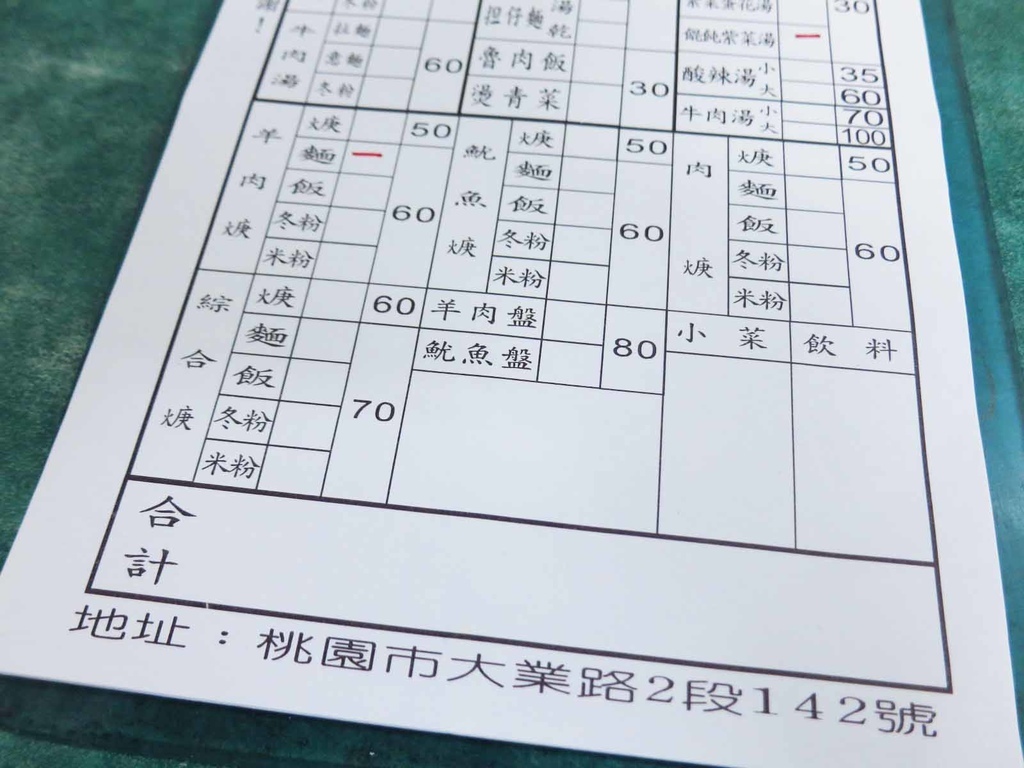 謝！
冬粉
湯
紫菜蛋花湯 30
擔仔麵 乾
餛飩紫菜湯 一
牛肉湯 拉麵
意麵 60
冬粉
魯肉飯
燙青菜 30
酸辣湯 小 35
大 60
牛肉湯 小 70
大 100
羊肉焿 焿 50
麵 一
飯 60
冬粉
米粉
魷魚焿 焿 50
麵
飯 60
冬粉
米粉
肉焿 焿 50
麵
飯 60
冬粉
米粉
綜合焿 焿 60
麵
飯 70
冬粉
米粉
羊肉盤 80
魷魚盤
小菜 飲料
合計
地址：桃園市大業路2段142號